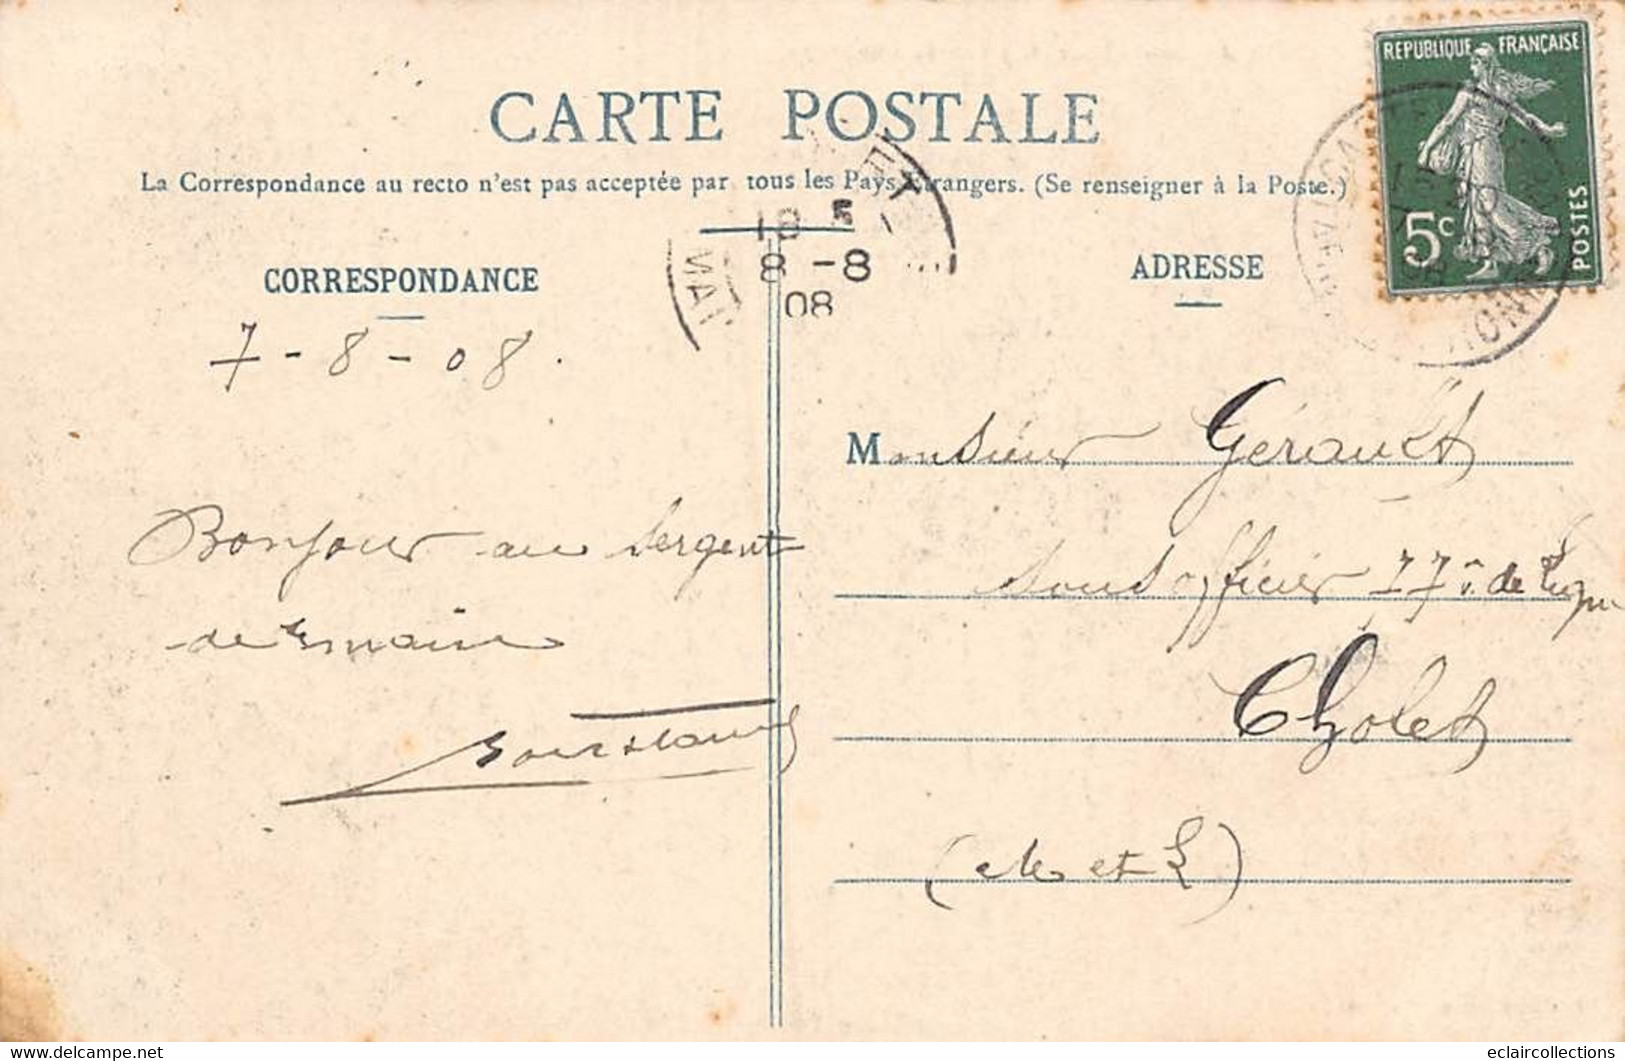 RÉPUBLIQUE FRANÇAISE
5c POSTES
CARTE POSTALE
La Correspondance au recto n'est pas acceptée par tous les Pays Étrangers. (Se renseigner à la Poste.)
18 5
8 - 8
08
CORRESPONDANCE
ADRESSE
7 - 8 - 08.
Monsieur Gérault
sous officier 77e de Ligne
Cholet
(M et L)
Bonjour au Sergent
de semaine
www.delcampe.net
eclaircollections